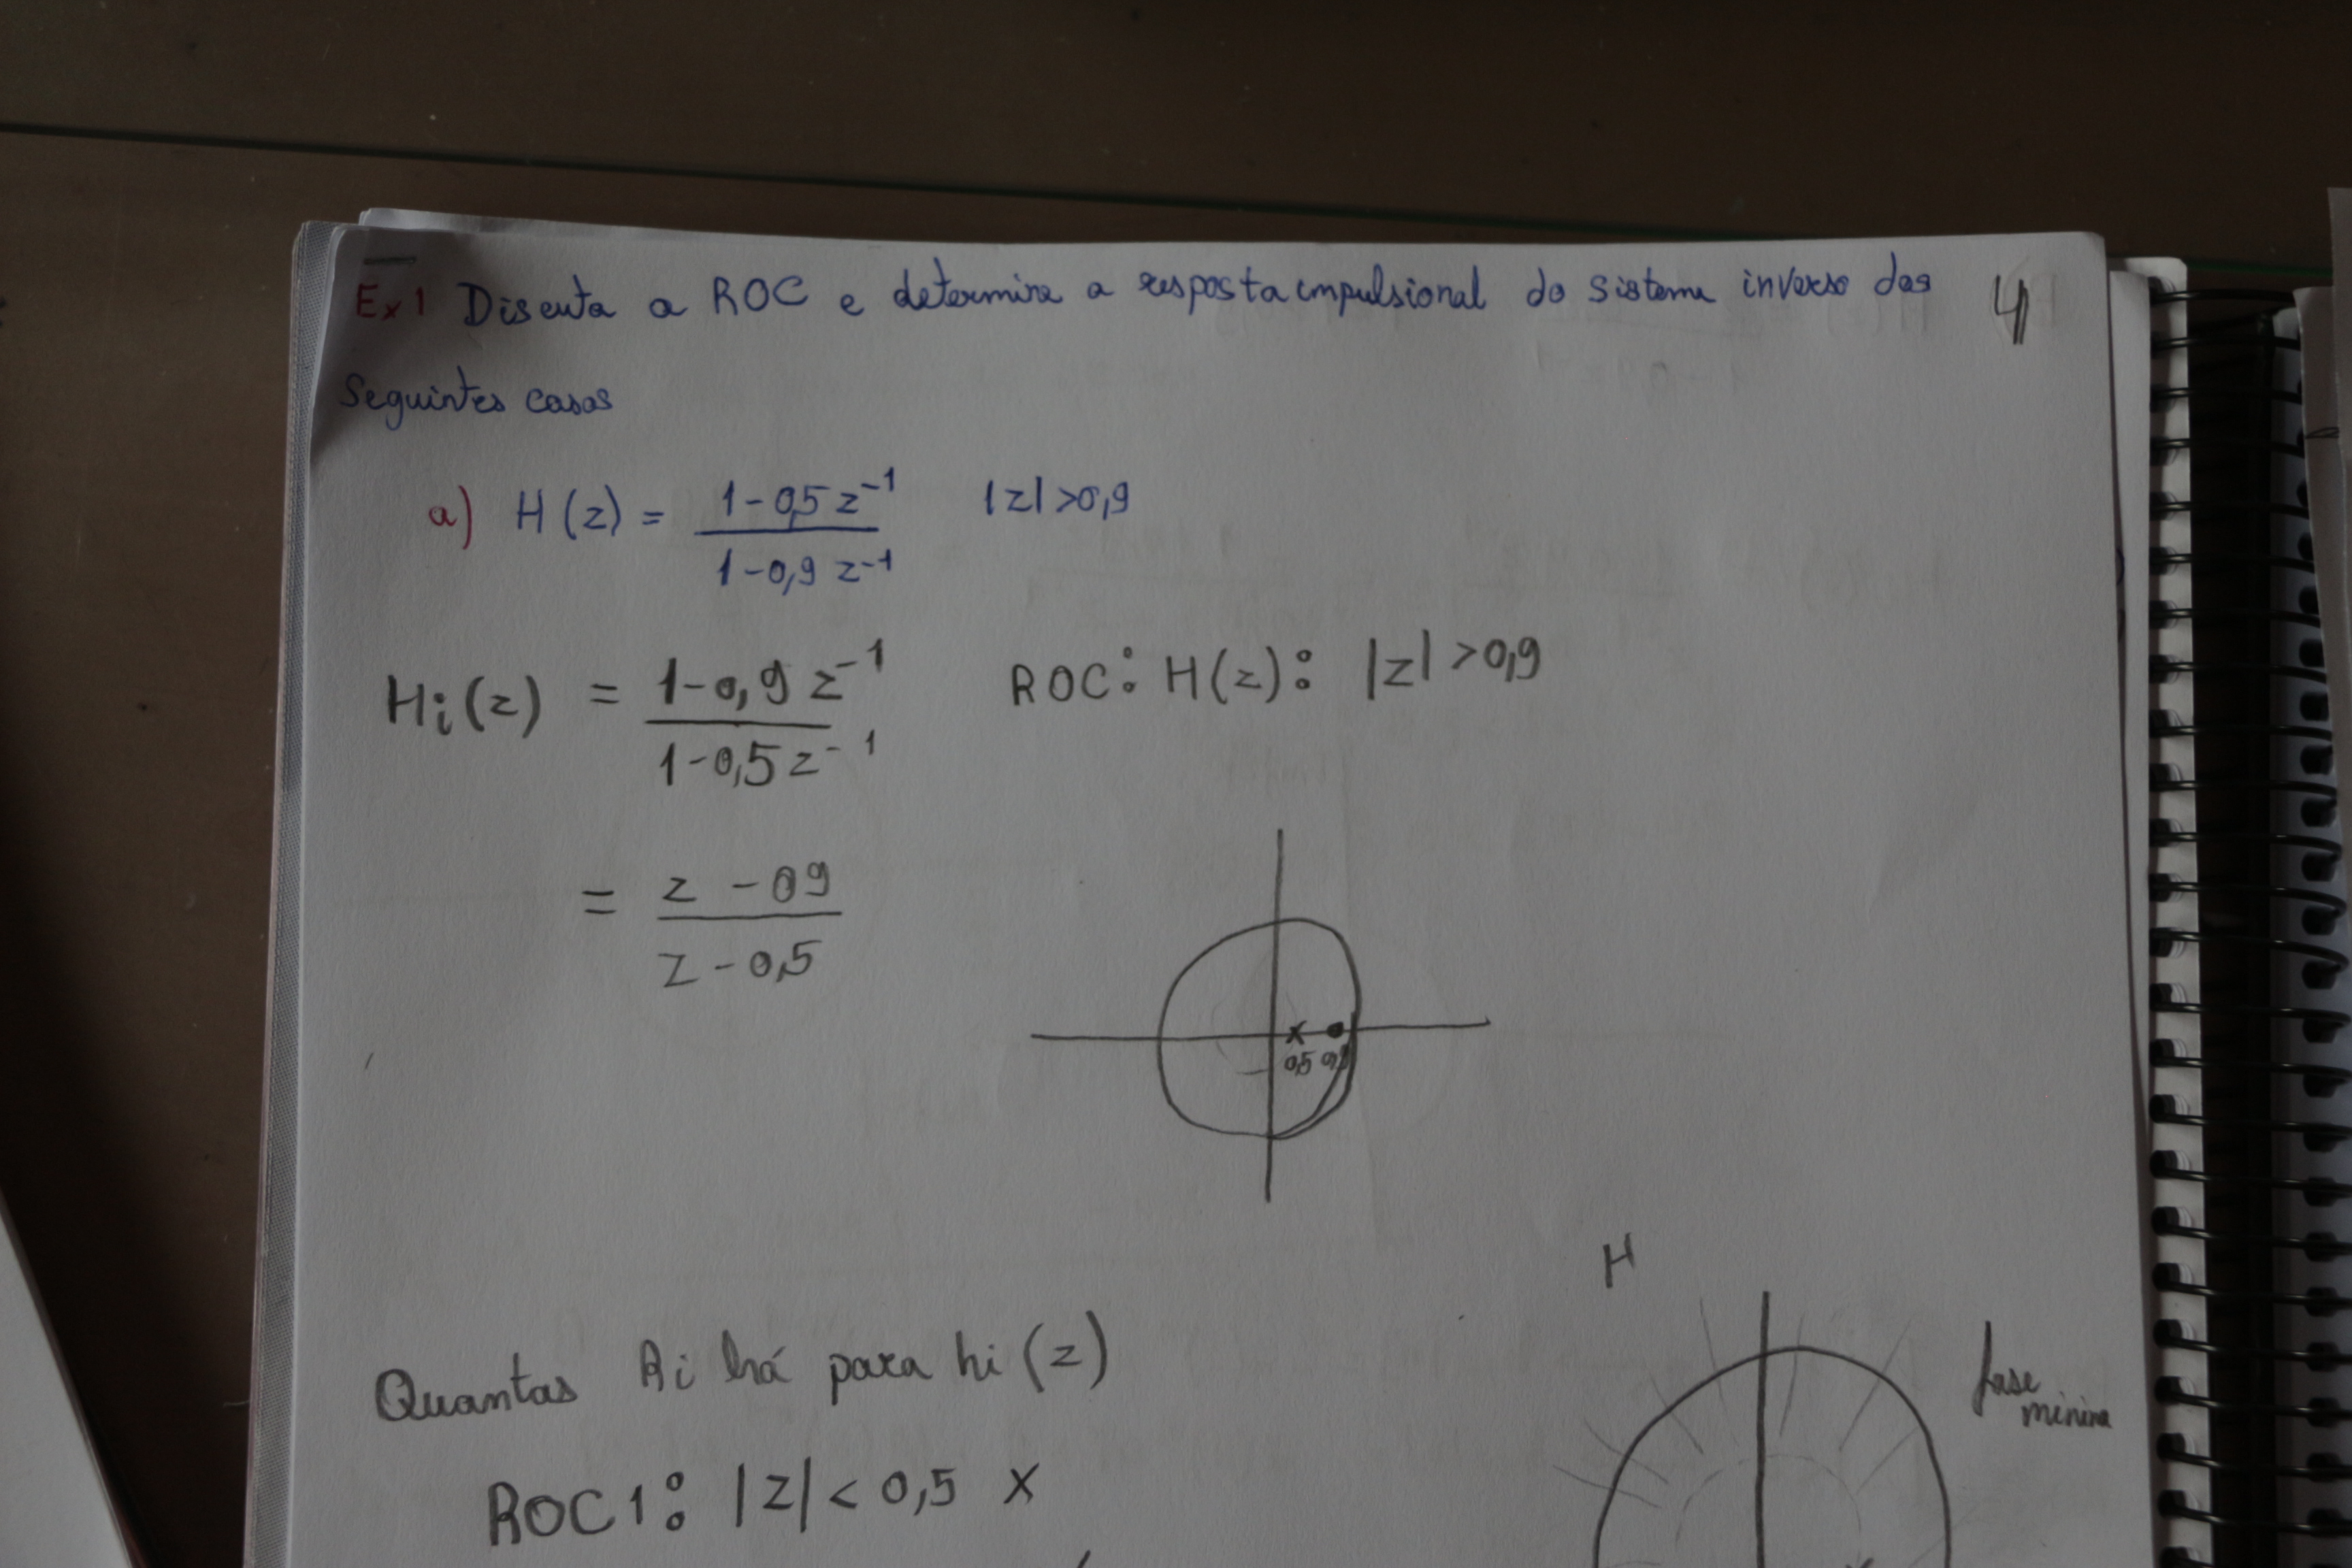 Ex1 Discuta a ROC e determina a resposta impulsional do sistema inverso das 4
Seguintes casos
a) H(z) = 1-0,5z⁻¹ / 1-0,9z⁻¹ |z|>0,9
Hi(z) = 1-0,9z⁻¹ / 1-0,5z⁻¹ ROC: H(z): |z|>0,9
= z-09 / z-0,5
x
0,5 0,9
H
fase
mínima
Quantas há para hi(z)
ROC1: |z| < 0,5 x